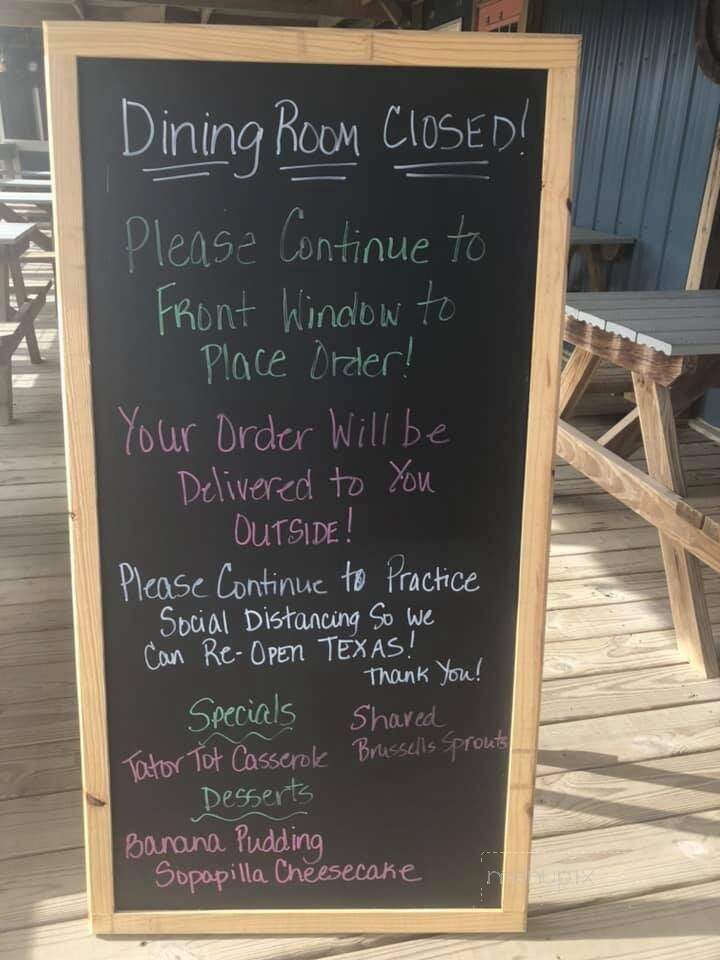 Dining Room CLOSED!
Please Continue to
Front Window to
Place Order!
Your Order Will be
Delivered to You
OUTSIDE!
Please Continue to Practice
Social Distancing So We
Can Re-Open TEXAS!
Thank You!
Specials
Tator Tot Casserole
Shaved
Brussells Sprouts
Desserts
Banana Pudding
Sopapilla Cheesecake
menupix